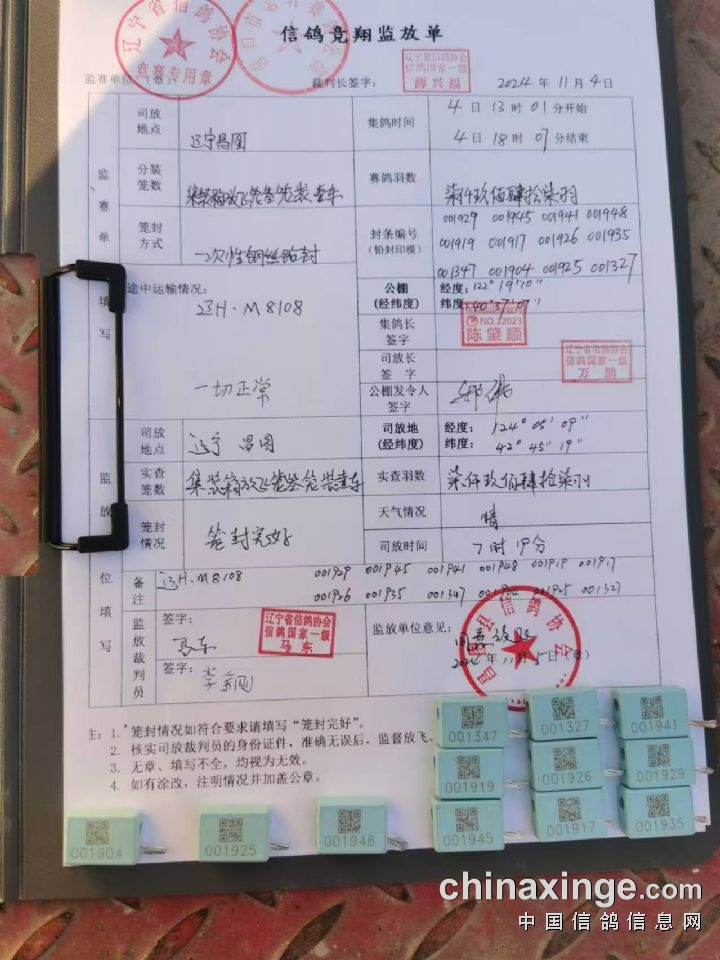 信鸽竞翔监放单
辽宁省信鸽协会
竞赛专用章
监赛单位（章）
裁判长签字：
辽宁省信鸽协会
信鸽国家一级
2024 年 11 月 4 日
监赛单
填写
司放地点
辽宁昌图
集鸽时间
4 日 13 时 01 分开始
4 日 18 时 07 分结束
分装笼数
赛鸽羽数
柒仟玖佰肆拾柒羽
笼封方式
一次性钢丝铅封
封条编号
(铅封印模)
001929 001945 001941 001948
001919 001917 001926 001935
001347 001904 001925 001327
途中运输情况：
辽H·M8108
一切正常
公棚
(经纬度)
经度：122° 19' 10"
纬度：40° 37' 07"
集鸽长
签字
NO.72023
陈肇顺
司放长
签 字
辽宁省信鸽协会
信鸽国家一级
万鹏
公棚发令人
签字
监放
位填写
司放地点
辽宁 昌图
司放地
(经纬度)
经度：124° 05' 09"
纬度：42° 45" 19"
实查笼数
实查羽数
柒仟玖佰肆拾柒羽
笼封情况
笼封完好
天气情况
晴
司放时间
7时 19分
备注
辽H·M8108 001929 001945 001941 001948 001919 001917
001926 001935 001347 001904 001925 001327
监放裁判员
签字：
马东
辽宁省信鸽协会
信鸽国家一级
马东
签字：
监放单位意见：
同意放飞
2024 年 11 月 5 日（章）
县信鸽协会
注：1. 笼封情况如符合要求请填写“笼封完好”。
2. 核实司放裁判员的身份证件，准确无误后，监督放飞。
3. 无章、填写不全，均视为无效。
4. 如有涂改，注明情况并加盖公章。
001347 001327 001941
001919 001926 001929
001904 001925 001948 001945 001917 001935
chinaxinge.com
中国信鸽信息网